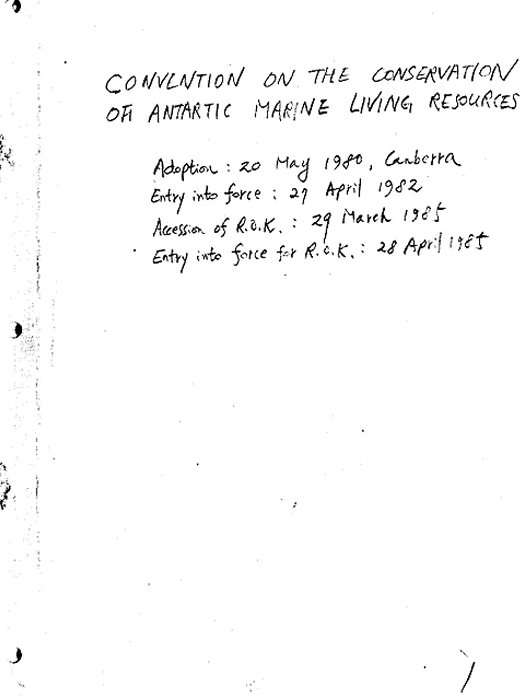 CONVENTION ON THE CONSERVATION
OF ANTARTIC MARINE LIVING RESOURCES
Adoption : 20 May 1980, Canberra
Entry into force : 27 April 1982
Accession of R.O.K. : 29 March 1985
Entry into force for R.O.K. : 28 April 1985